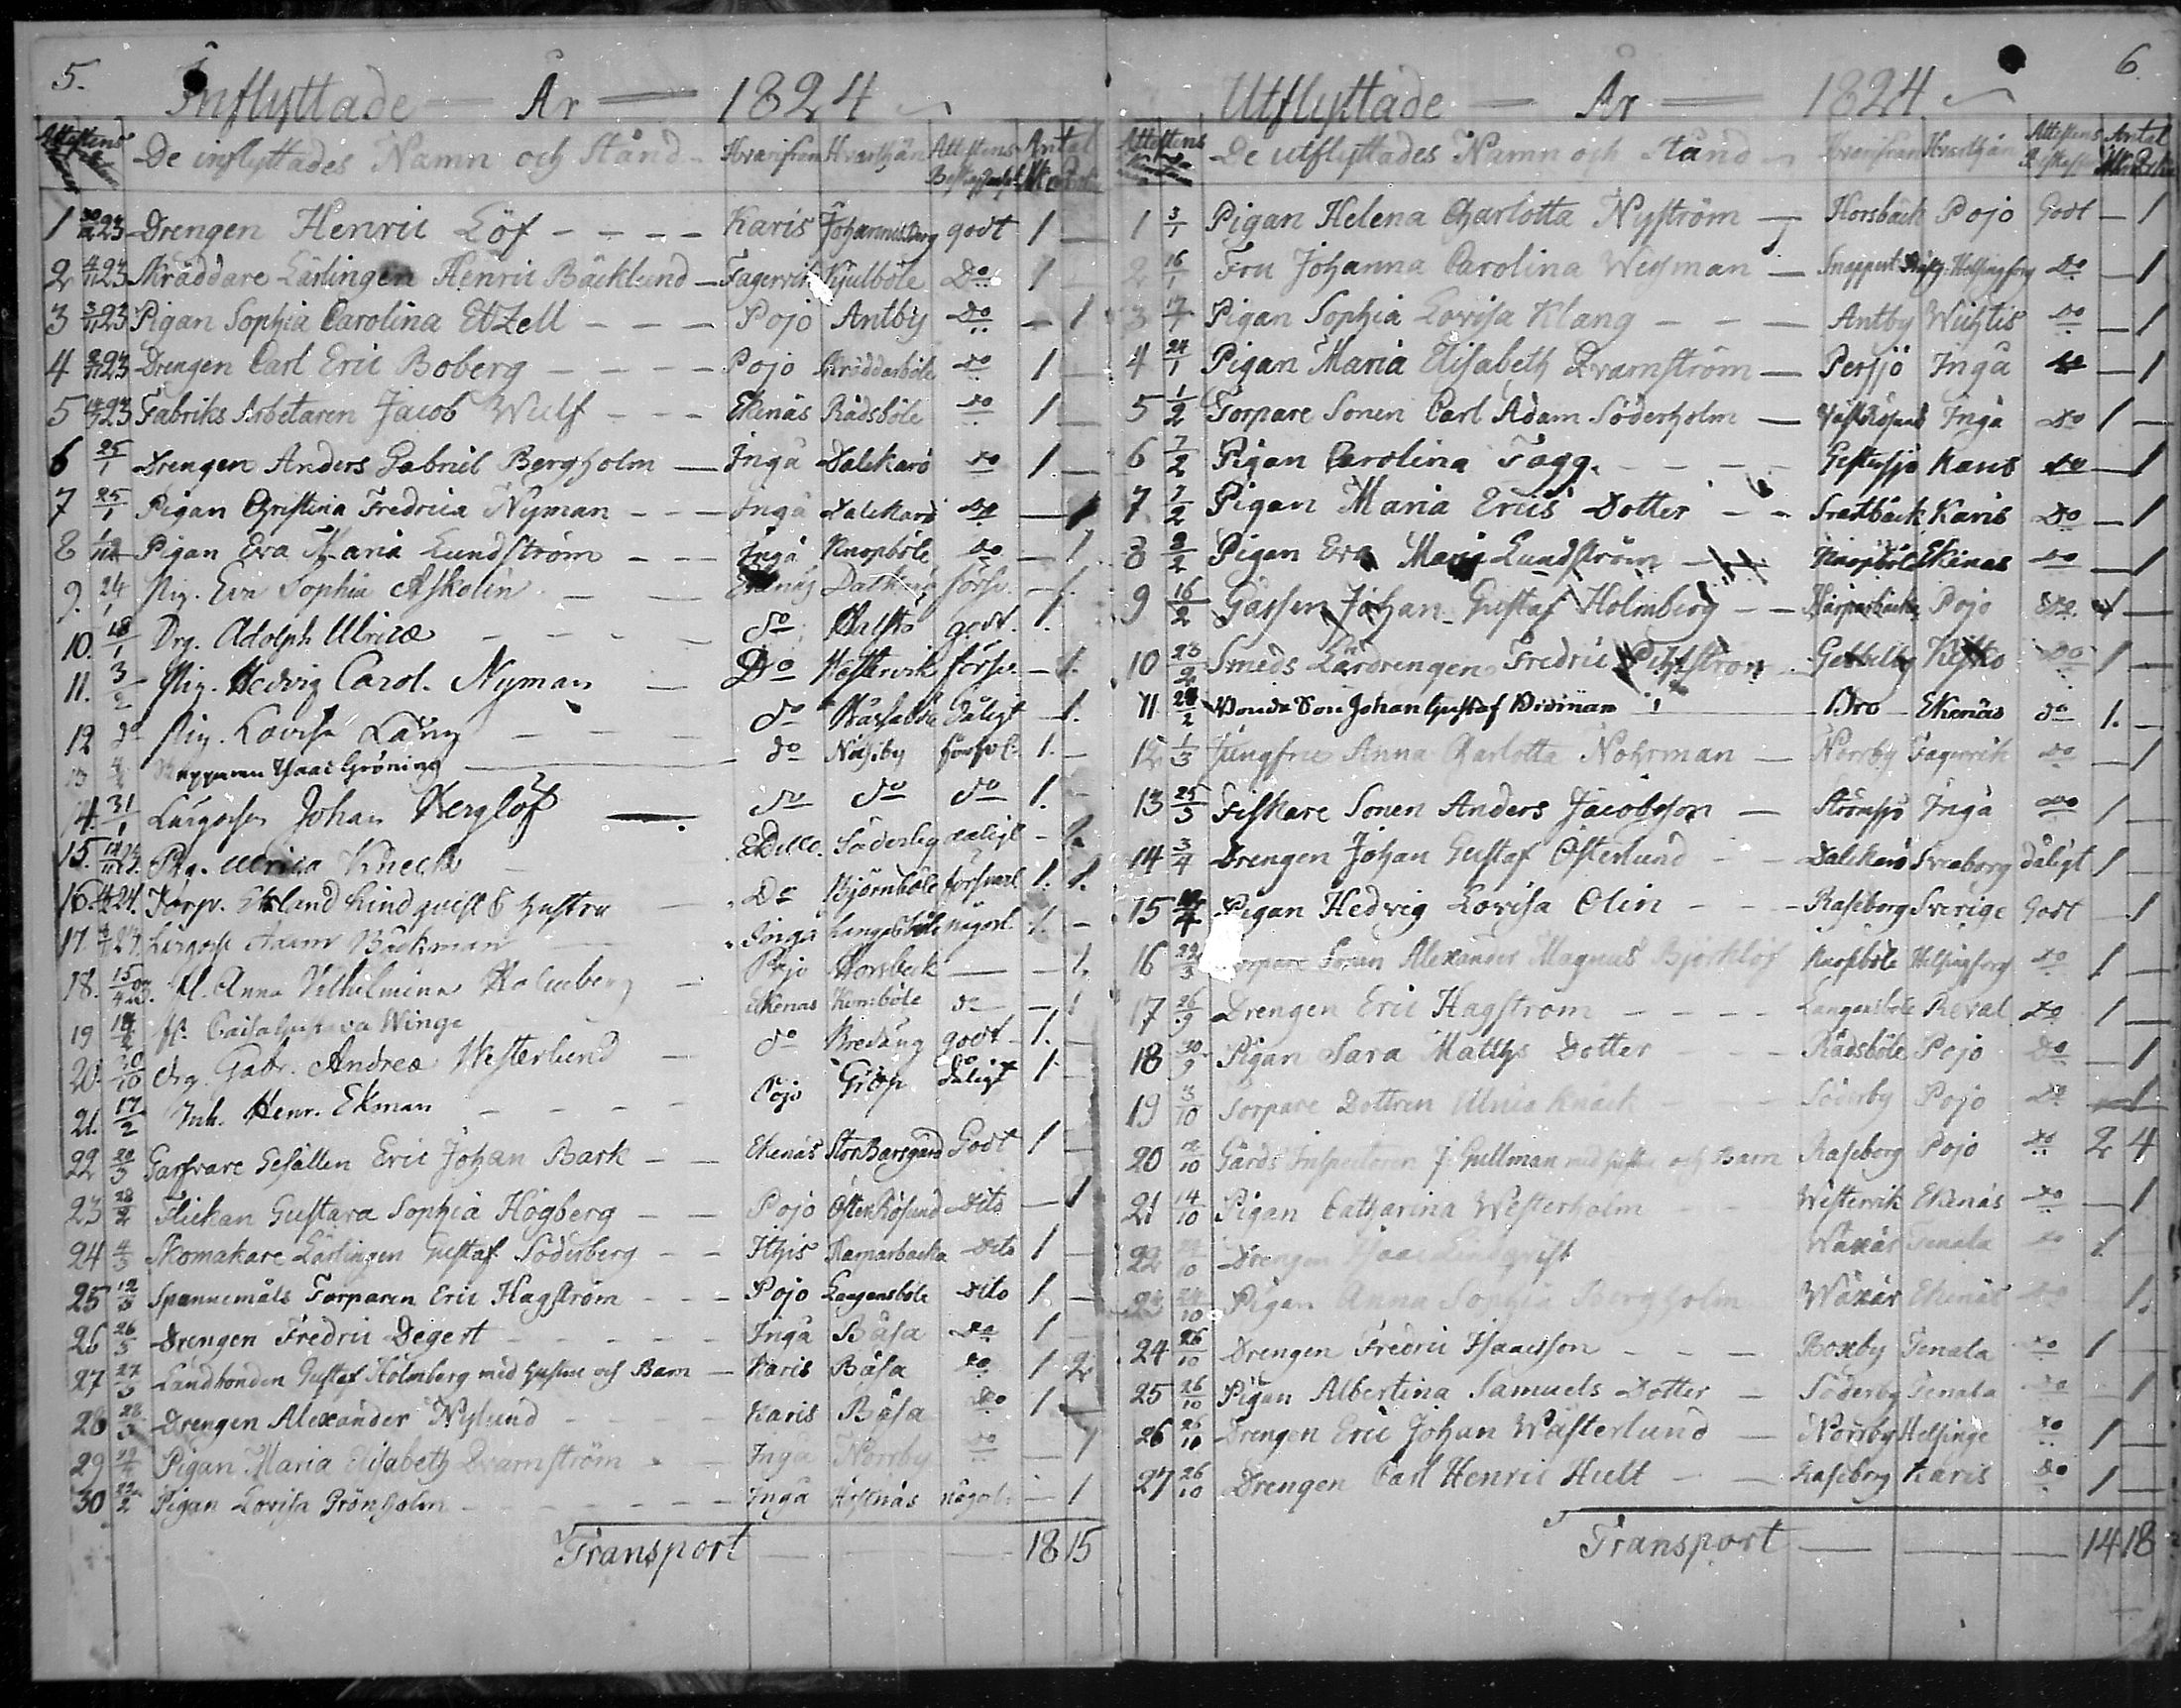 5.
Inflyttade År 1824
Attestens De inflyttades Namn och Stånd Hvarifrån Hvarthän Attestens Beskaffenhet Antal Mk Qvk
1 23 Drengen Henric Löf Karis Johannisberg godt 1
2 23 Skräddare Lärlingen Henric Bäcklund Fagervik Kjulböle Do 1
3 3/11 23 Pigan Sophia Carolina Etzell Pojo Antby Do 1
4 23 Drengen Carl Eric Boberg Pojo Skriddarböle do 1
5 23 Fabriks Arbetaren Jacob Wulf Ekenäs Rådsböle do 1
6 25/1 Drengen Anders Gabriel Bergholm Ingå Dalckarö do 1
7 25/1 Pigan Christina Fredrica Nyman Ingå Dalckarö do 1
8 Pigan Eva Maria Lundström Ingå Knopböle do 1
9. 24/1 Pig. Eva Sophia Askolin Ekenäs försv. 1.
10. 18/1 Drg. Adolph Ulrica do godt. 1.
11. 3/2 Pig. Hedvig Carol. Nyman Do Westervik försv. 1.
12 do Pig. Lovisa Lång do dåligt 1.
13 4/2 Isaac Gröning do Näseby försvl. 1.
14. 31/1 Johan Berglöf do do do 1.
15. Pig. Ulrica Kneck Söderby daligt 1.
16. 24. Torp. Ekland Lindqvist & hustru Do Björnböle försvarl 1. 1.
17. 24. Adam Bäckman Ingå Langansböle någorl. 1.
18. 15/4 Fl. Anna Vilhelmina Holmberg Pojo Horsbeck 1.
19 14/2 fl. Caisa Gustava Winge Ekenäs do 1
20. 20/10 drg. Gabr. Andrea Westerlund do Bredäng godt 1.
21. 17/2 Inh. Henr. Ekman Pojo Grop dåligt 1
22 20/3 Garfvare Gesällen Eric Johan Bark Ekenäs Stor Barsgård Godt 1
23 28/2 Flickan Gustava Sophia Högberg Pojo Öster Rösund Dito 1
24 4/3 Skomakare Lärlingen Gustaf Söderberg Ithis Ramarbacka Dito 1
25 12/3 Spannemåls Torparen Eric Hagström Pojo Langansböle Dito 1
26 26/3 Drengen Fredric Degert Ingå Båsa Do 1
27 27/3 Landbonden Gustaf Holmberg med hustru och Barn Karis Båsa do 1 2
28 28/3 Drengen Alexander Nylund Karis Båsa Do 1
29 Pigan Maria Elisabeth Qvarnström Ingå Norrby do 1
30 22/2 Pigan Lovisa Grönholm Ingå någorl. 1
Transport 18 15
6
Utflyttade År 1824
Attestens De utflyttades Namn och Stånd Hvarifrån Hvarthän Attestens Beskaffen Antal Mk Qvk
1 3/1 Pigan Helena Charlotta Nyström Horsbäck Pojo Godt 1
2 16/1 Fru Johanna Carolina Weyman Snappert. Helsingfors Do 1
3 17/1 Pigan Sophia Lovisa Klang Antby Wichtis do 1
4 24/1 Pigan Maria Elisabeth Qvarnström Persjö Ingå do 1
5 1/2 Torpare Sonen Carl Adam Söderholm Ingå Do 1
6 7/2 Pigan Carolina Fagg. Karis do 1
7 7/2 Pigan Maria Erics Dotter Karis Do 1
8 8/2 Pigan Eva Maria Lundström Knopböle Ekenäs do 1
9 16/2 Gossen Johan Gustaf Holmberg Pojo Do 1
10 23/2 Smeds Lärdrengen Fredric Pihlström Gebbelby Kisko Do 1
11 28/2 Bonde Son Johan Gustaf Bro Ekenäs do 1.
12 1/3 Jungfru Anna Charlotta Nohrman Norrby Fagervik do 1
13 25/3 Fiskare Sonen Anders Jacobsson Strömsjö Ingå do 1
14 3/4 Drengen Johan Gustaf Österlund Dalckarö Sveaborg dåligt 1
15 Pigan Hedvig Lovisa Olin Raseborg Sverige Godt 1
16 22/3 Torpare Sonen Alexander Magnus Björklöf Knopböle Helsingfors do 1
17 26/9 Drengen Eric Hagström Langansböle Reval Do 1
18 30/9 Pigan Sara Matths Dotter Rådsböle Pojo Do 1
19 3/10 Torpare Dottren Ulrica Knack Söderby Pojo Do 1
20 12/10 Gårds Inspectoren J. Gullman med hustru och Barn Raseborg Pojo do 2 4
21 14/10 Pigan Catharina Westerholm Westervik Ekenäs do 1
22 22/10 Drengen Isaac Lindqvist Wäxär Tenala do 1
23 24/10 Pigan Anna Sophia Bergholm Wäxär Ekenäs do 1.
24 26/10 Drengen Fredric Isacsson Boxby Tenala do 1
25 26/10 Pigan Albertina Samuels Dotter Söderby Tenala do 1
26 26/10 Drengen Eric Johan Wästerlund Norrby Helsinge do 1
27 26/10 Drengen Carl Henric Hult Raseborg Karis Do 1
Transport 14 18